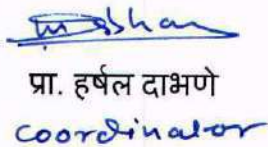 प्रा. हर्षल दाभणे
coordinator